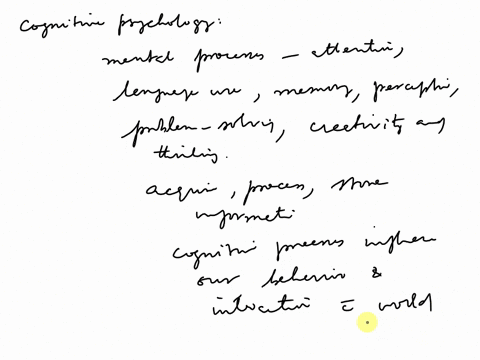 cognitive psychology:
mental process – attention,
language use, memory, perception,
problem-solving, creativity and
thinking.
acquire, process, store
information
cognitive processes influence
our behavior &
interaction c̄ world